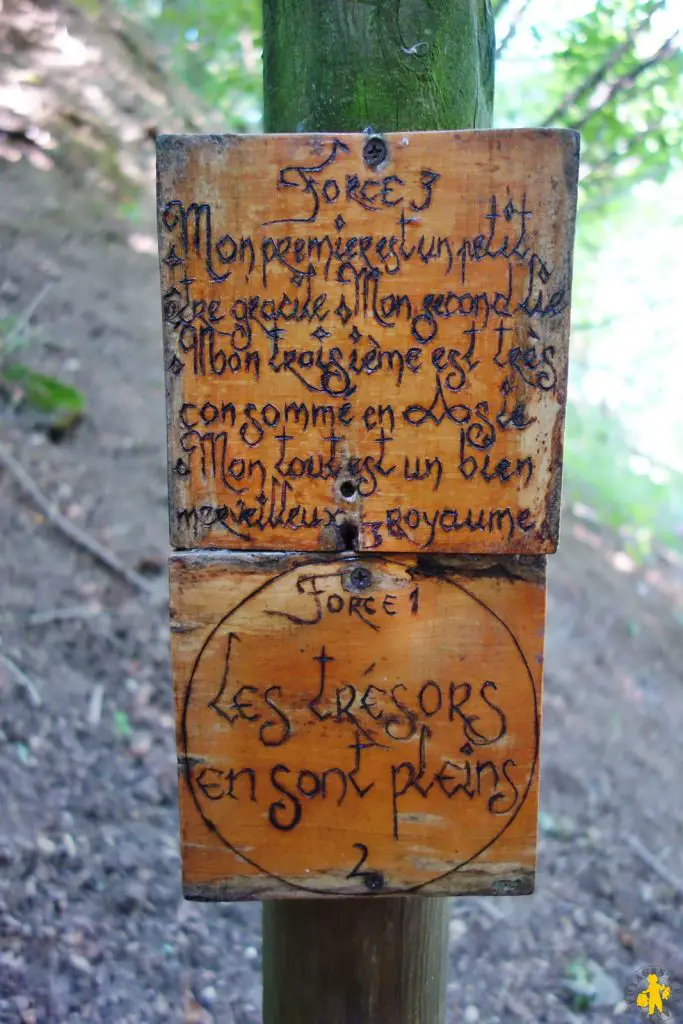 Force 3
Mon premier est un petit
être gracile Mon second lie
Mon troisième est très
consommé en Asie
Mon tout est un bien
merveilleux royaume
3
Force 1
Les trésors
en sont pleins
2